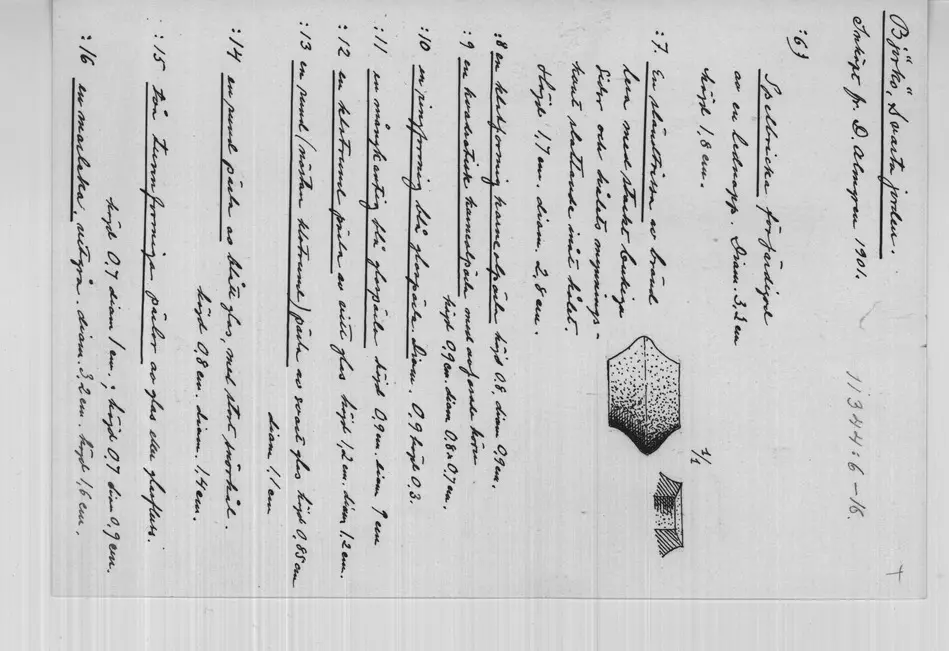 Björkö, Svarta jorden.
Inköpt fr. D. Almgren 1901.
11344:6–16.
:6) Spelbricka förfärdigad
av en ledknapp. Diam. 3,2 cm
höjd 1,8 cm.
:7. En sländtrissa av bränd
lera med starkt buktiga
sidor och hålets mynnings-
kant sluttande inåt hålet.
Höjd 1,7 cm. diam 2,8 cm.
1/1
:8 en klotformig karneolpärla höjd 0.8. diam 0.9 cm.
:9 en kvadratisk karneolpärla med avfasade hörn
höjd 0,9 cm. diam 0.8 x 0,7 cm.
:10. en ringformig blå glaspärla. Diam. 0.9 höjd 0.3.
:11 en mångkantig blå glaspärla höjd 0,9 cm. diam 1 cm
:12 en klotrund pärla av vitt glas höjd 1,2 cm. diam 1,2 cm.
:13 en rund (nästan klotrund) pärla av svart glas höjd 0,85 cm
diam 1.1 cm
:14 en rund pärla av blått glas, med stort snörhål.
höjd 0,8 cm. diam. 1,4 cm.
:15 två tunnformiga pärlor av glas eller glasfluss.
höjd 0.7 diam 1 cm; höjd 0.7 diam 0,9 cm.
:16 en marleka, vitgrå. diam. 3,2 cm. höjd 1,6 cm.